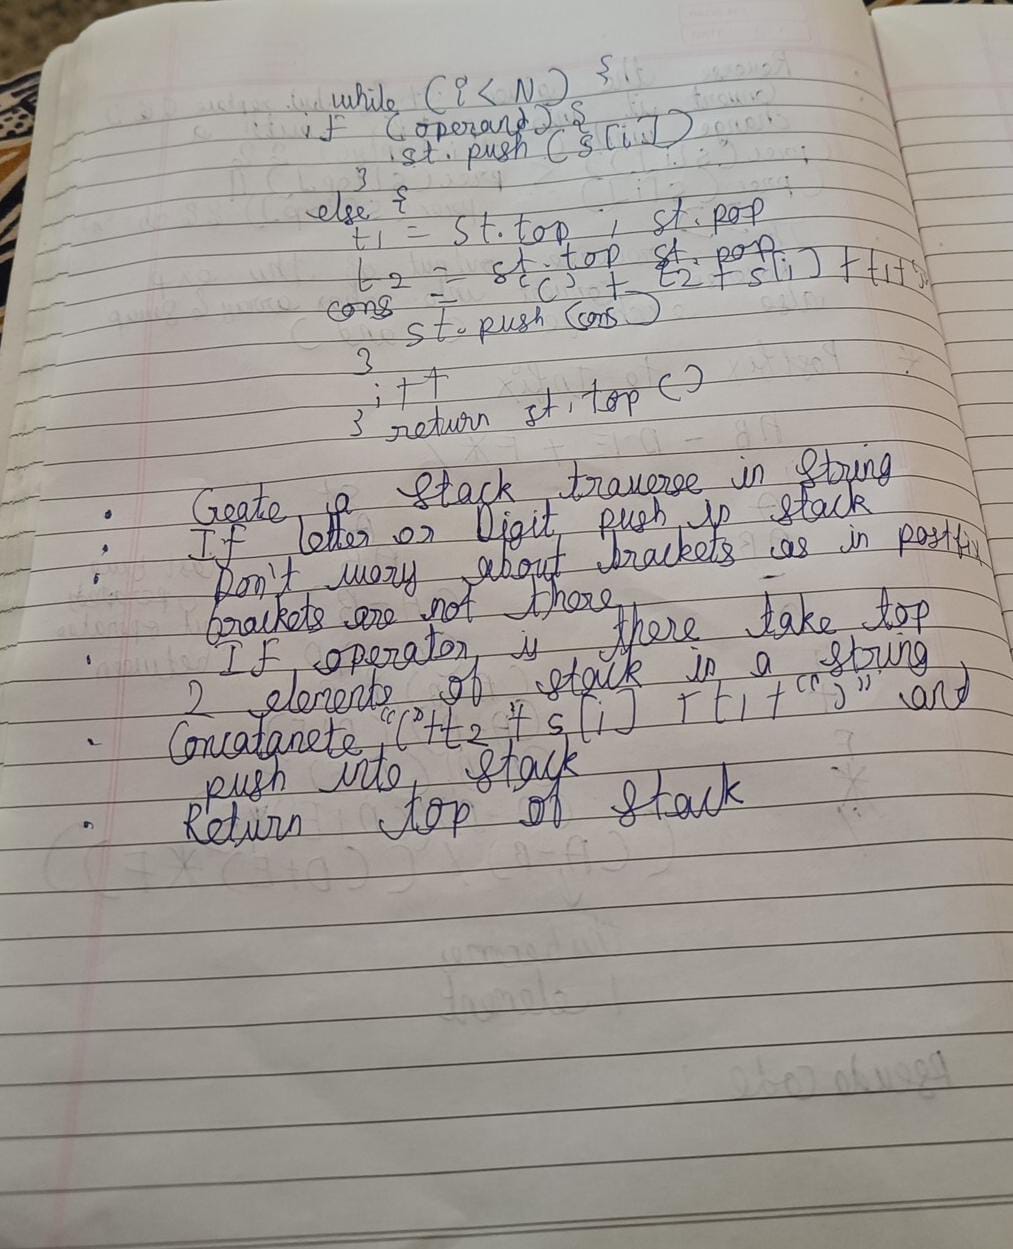 while (i < N) {
if (operand) {
st. push (s[i])
}
else {
t1 = st.top ; st. pop
t2 = st. top st. pop
cons = "(" + t2 + s[i] + t1 +
st. push (cons)
}
i++
} return st. top ()
• Create a stack traverse in string
• If letter or Digit push in stack
• Don't worry about brackets as in postfix
brackets are not there
• If operator is there take top
2 elements of stack in a string
• Concatanete "(" + t2 + s[i] + t1 + ")" and
push into stack
• Return top of stack